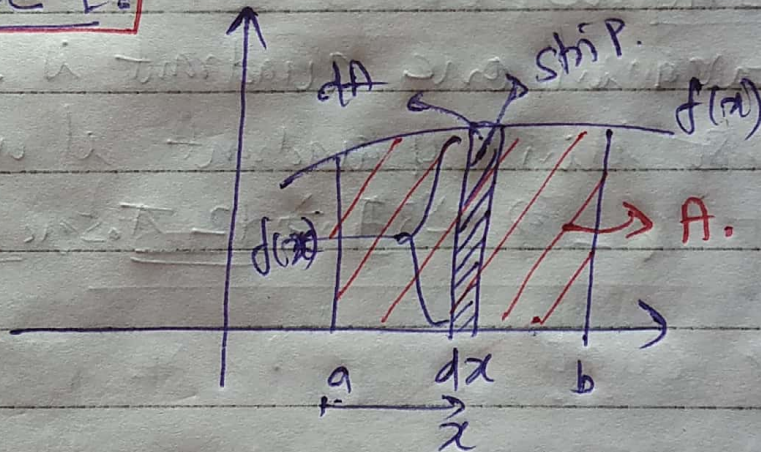 dA
strip.
f(x)
f(x)
A.
a
dx
b
x